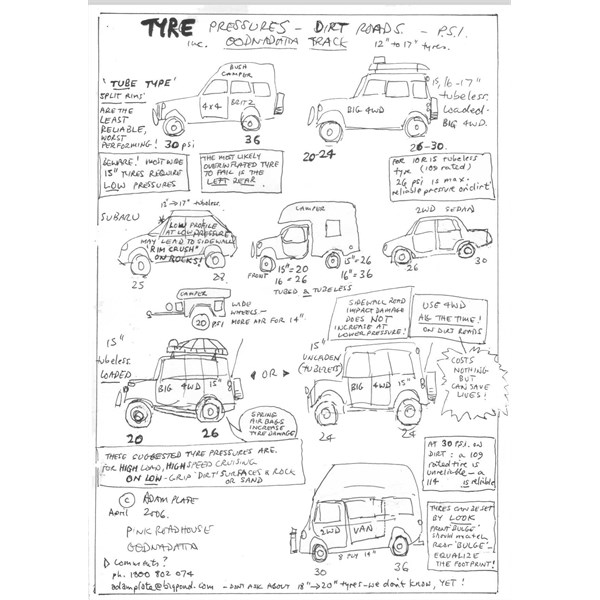 TYRE PRESSURES - DIRT ROADS. - P.S.I.
inc. OODNADATTA TRACK 12" to 17" tyres.
BUSH
CAMPER
4x4 BRITZ
36
'TUBE TYPE'
SPLIT RIMS
ARE THE
LEAST
RELIABLE,
WORST
PERFORMING! 30 psi
BIG 4WD
20-24
26-30.
15, 16-17"
tubeless.
Loaded-
BIG 4WD.
BEWARE! MOST WIDE
15" TYRES REQUIRE
LOW PRESSURES
THE MOST LIKELY
OVERINFLATED TYRE
TO FAIL IS THE
LEFT REAR
FOR 10R15 tubeless
tyre (109 rated)
26 psi is max.
reliable pressure on dirt
SUBARU
12"→17" tubeless.
LOW PROFILE
AT LOW PRESSURE
MAY LEAD TO SIDEWALL
'RIM CRUSH'
ON ROCKS!
25
28
CAMPER
FRONT
15"=20
16=26
15"=26
16"=36
TUBED & TUBELESS
2WD SEDAN
26
30
CAMPER
20 PSI
WIDE
WHEELS -
MORE AIR FOR 14".
SIDEWALL ROAD
IMPACT DAMAGE
DOES NOT
INCREASE AT
LOWER PRESSURE!
USE 4WD
ALL THE TIME!
ON DIRT ROADS
15"
tubeless
LOADED
BIG 4WD 15"
20
26
OR
15"
UNLADEN
(TUBELESS)
BIG 4WD 15"
24
24
COSTS
NOTHING
BUT
CAN SAVE
LIVES!
SPRING
AIR BAGS
INCREASE
TYRE DAMAGE
THESE SUGGESTED TYRE PRESSURES ARE.
FOR HIGH LOAD, HIGH SPEED CRUISING
ON LOW-GRIP 'DIRT' SURFACES & ROCK
OR SAND
AT 30 PSI. ON
DIRT: a 109
rated tire is
unreliable - a
114 is reliable
© ADAM PLATE
April 2006.
PINK ROADHOUSE
OODNADATTA
2WD VAN
8 PLY 14"
30
36
TYRES CAN BE SET
BY LOOK
FRONT 'BULGE'
should match
REAR 'BULGE' -
EQUALIZE
THE FOOTPRINT!
Comments?
ph. 1800 802 074
adamplate@bigpond.com - DON'T ASK ABOUT 18"→20" tyres - we don't know, YET!